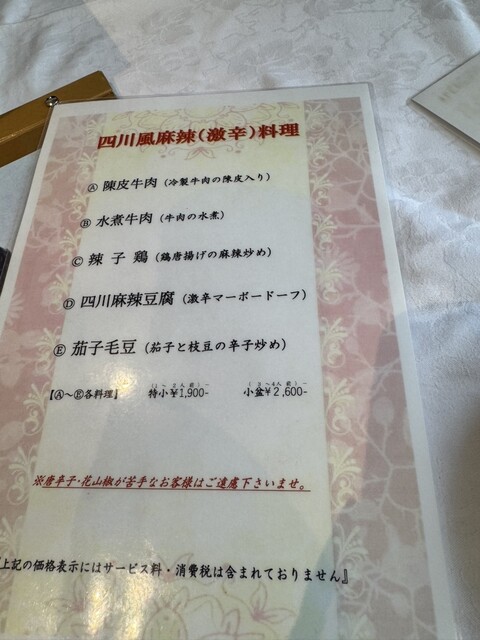 四川風麻辣(激辛)料理
Ⓐ 陳皮牛肉 (冷製牛肉の陳皮入り)
Ⓑ 水煮牛肉 (牛肉の水煮)
Ⓒ 辣子鶏 (鶏唐揚げの麻辣炒め)
Ⓓ 四川麻辣豆腐 (激辛マーボードーフ)
Ⓔ 茄子毛豆 (茄子と枝豆の辛子炒め)
(1～2人前) (3～4人前)
【Ⓐ～Ⓔ各料理】 特小¥1,900- 小盆¥2,600-
※唐辛子・花山椒が苦手なお客様はご遠慮下さいませ。
『上記の価格表示にはサービス料・消費税は含まれておりません』